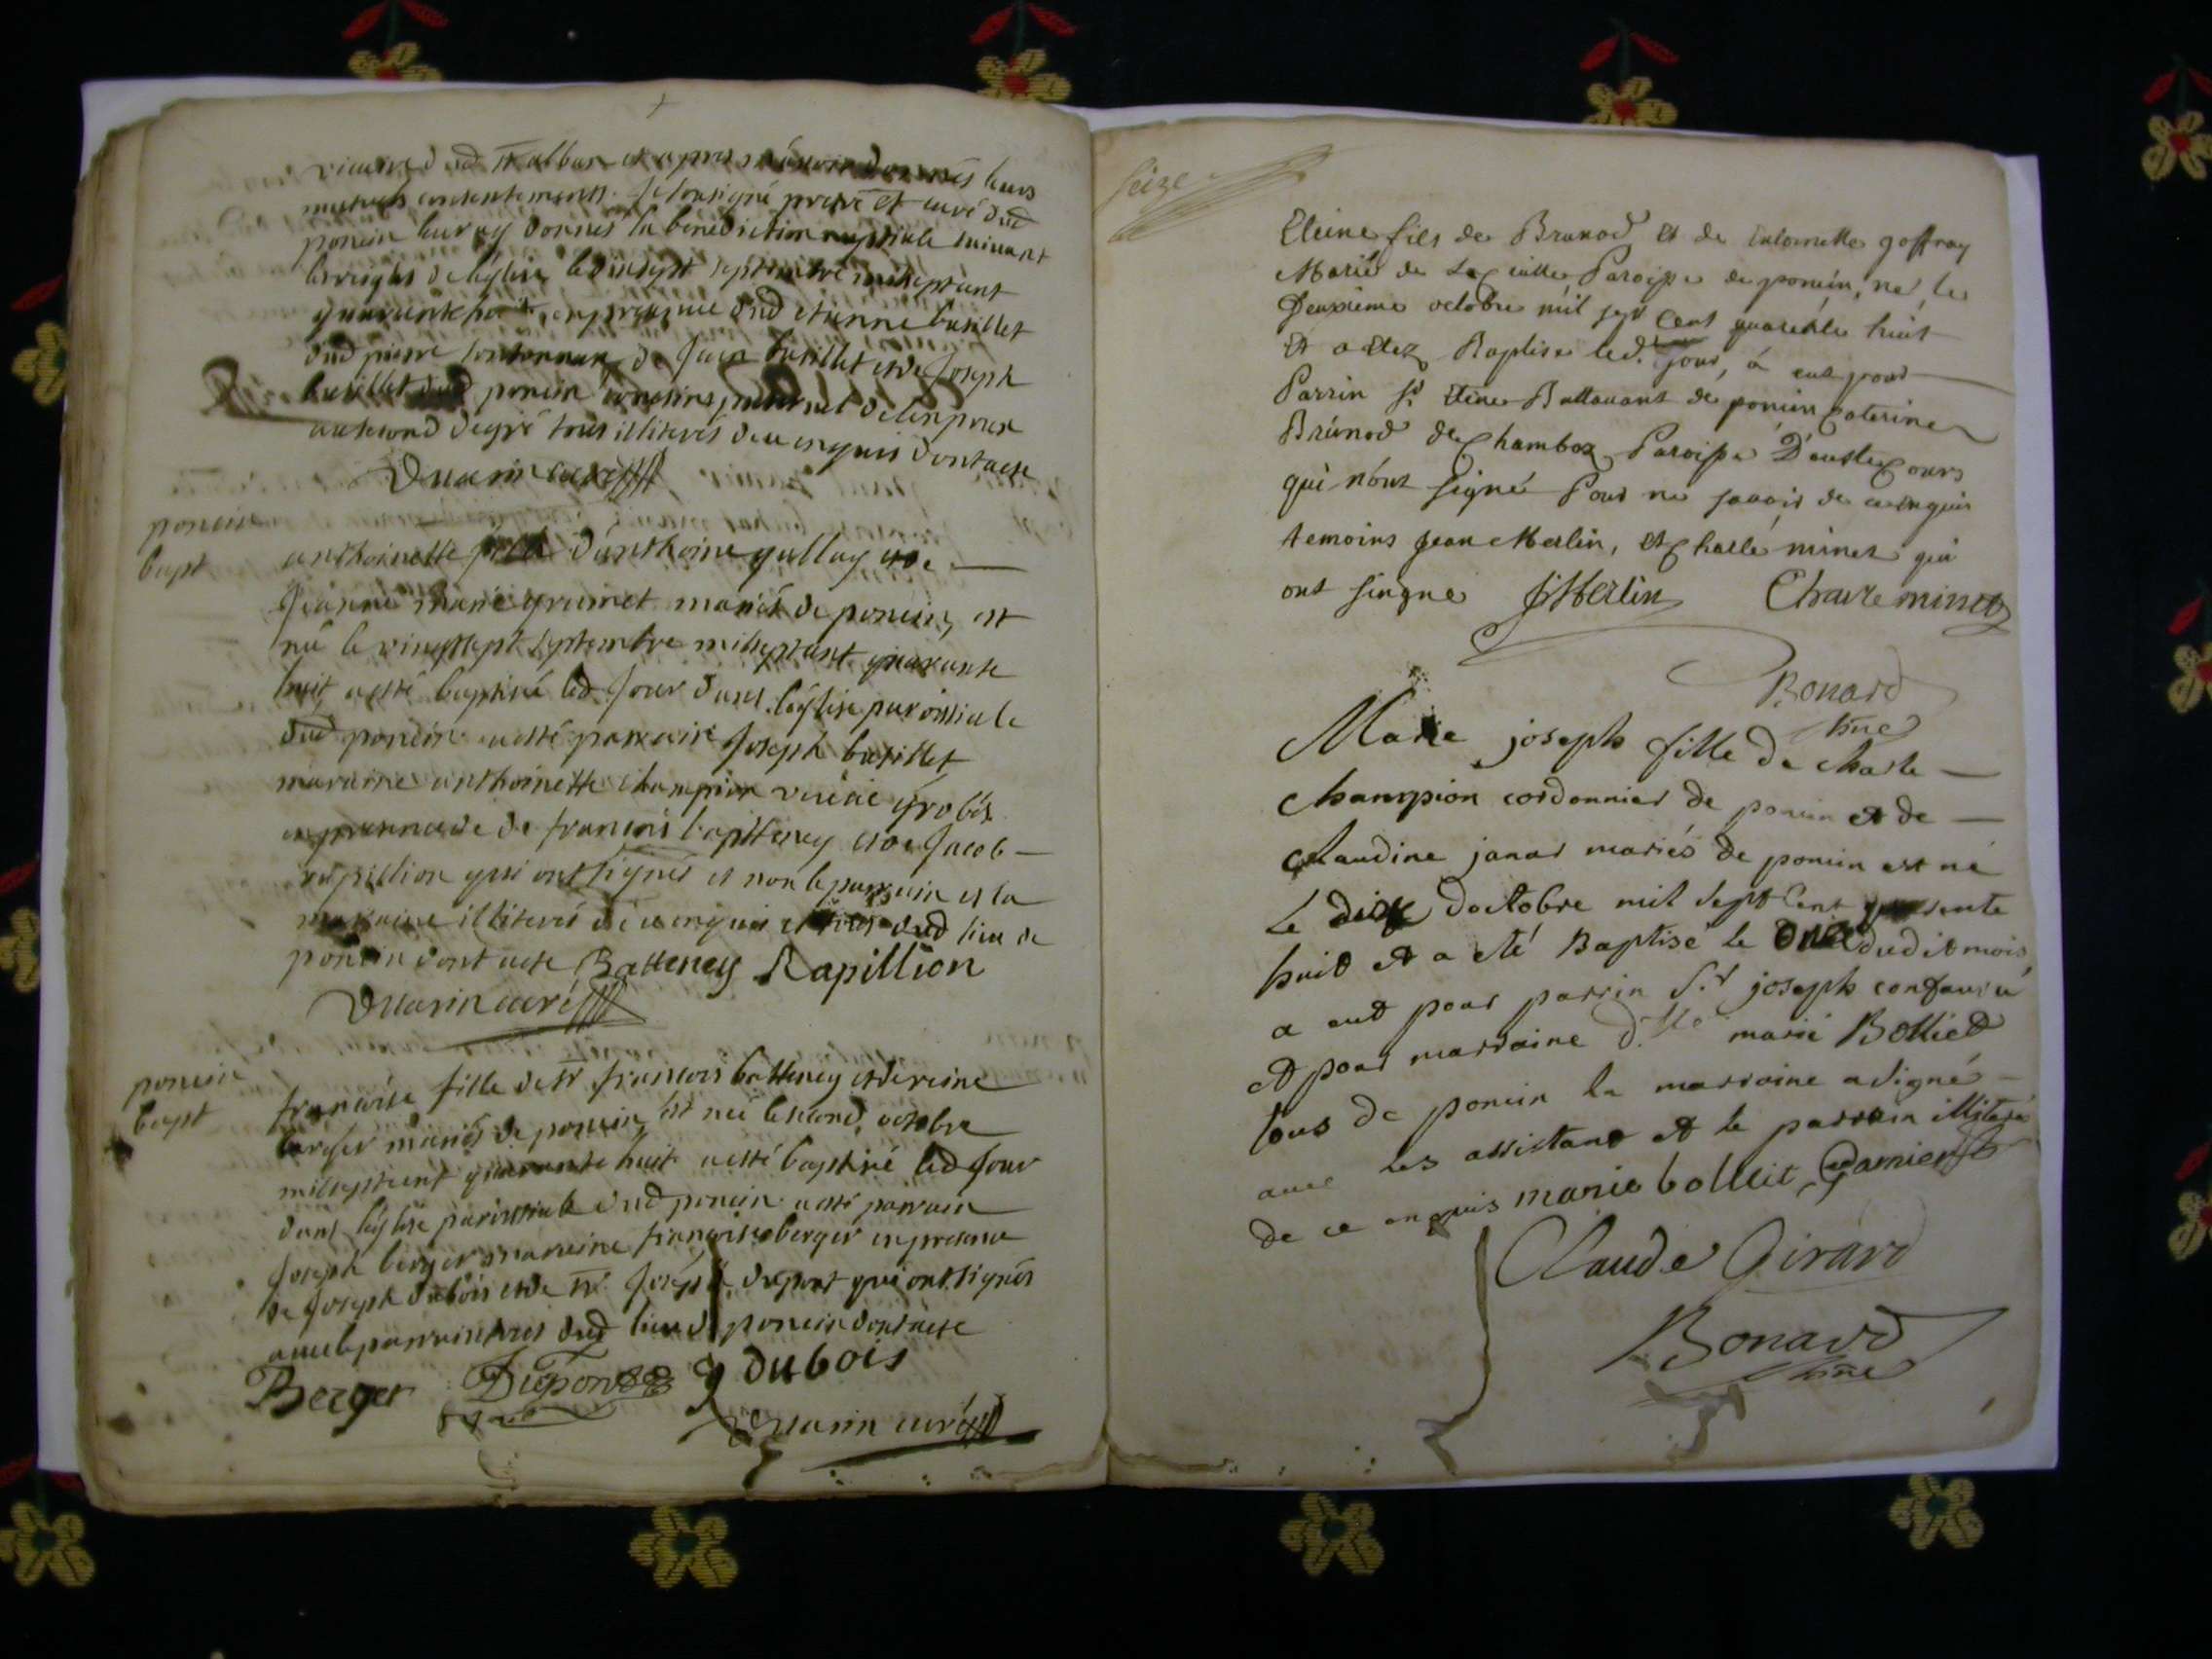 vicaire dud St alban et apres m'avoir donnés leurs
mutuels consentements. Je soussigné pretre et curé dud
poncin leur ay donnés la bénédiction nuptiale suivant
les regles de léglise le septembre millesept cent
quarante huit, en presence dud etienne basillet
dud pierre de Jean basillet et de Joseph
basillet dud poncin cousins paternel de lepoux
au second degré tous illiterés de ce enquis dont acte
Duarin curé
poncin
bapt
anthoinette fille d'anthoine gallay et de
Jeanne marie grumet mariés de poncin, est
née le vingtsept septembre millesept cent quarante
huit, a esté baptisé led Jour dans léglise paroissiale
dud poncin a esté parrain Joseph basillet
maraine anthoinette champion
en presence de francois batteney et de Jacob
rapillion qui ont signés et non le parrain et la
maraine illiterés de ce enquis et tous dud lieu de
poncin dont acte Batteney Rapillion
Duarin curé
poncin
bapt
francoise fille de Sr francois batteney et de reine
berger mariés de poncin, est née le second octobre
millesept cent quarante huit a esté baptisé led Jour
dans léglise paroissiale dud poncin a esté parrain
Joseph berger maraine francoise berger en presence
de Joseph dubois et de Sr Joseph dupont qui ont signés
avec le parrain tous dud lieu de poncin dont acte
Berger Dupont J dubois
Duarin curé
seize
Eteine fils de Brunod et de entoinette goffray
Marié de La Paroisse de poncin, né le
Deuxieme octobre mil sept Cent quarente huit
et a etez Baptise led. jour, a eut pour
Parrin Sr. Eteine Battavant de poncin Caterine
Brúnod de Chamboz Paroisse D'
qui n'ont signé Pour ne savoir de ce enquis
temoins Jean Merlin, et Charle minet qui
ont singne J Merlin Charle minet
Bonard
vicaire
Marie joseph fille de Charle
Champion cordonnier de poncin et de
Claudine janar mariés de poncin est né
Le dix doctobre mil sept Cent quarente
huit et a eté Baptisé le onze dudit mois
a eut pour parrin S.r joseph
et pour marraine d.lle marie Bolliet
tous de poncin la marraine a signé
avec les assistant et le parrain illiteré
de ce enquis marie bolleit Garnier
Claude Girard
Bonard
vicaire